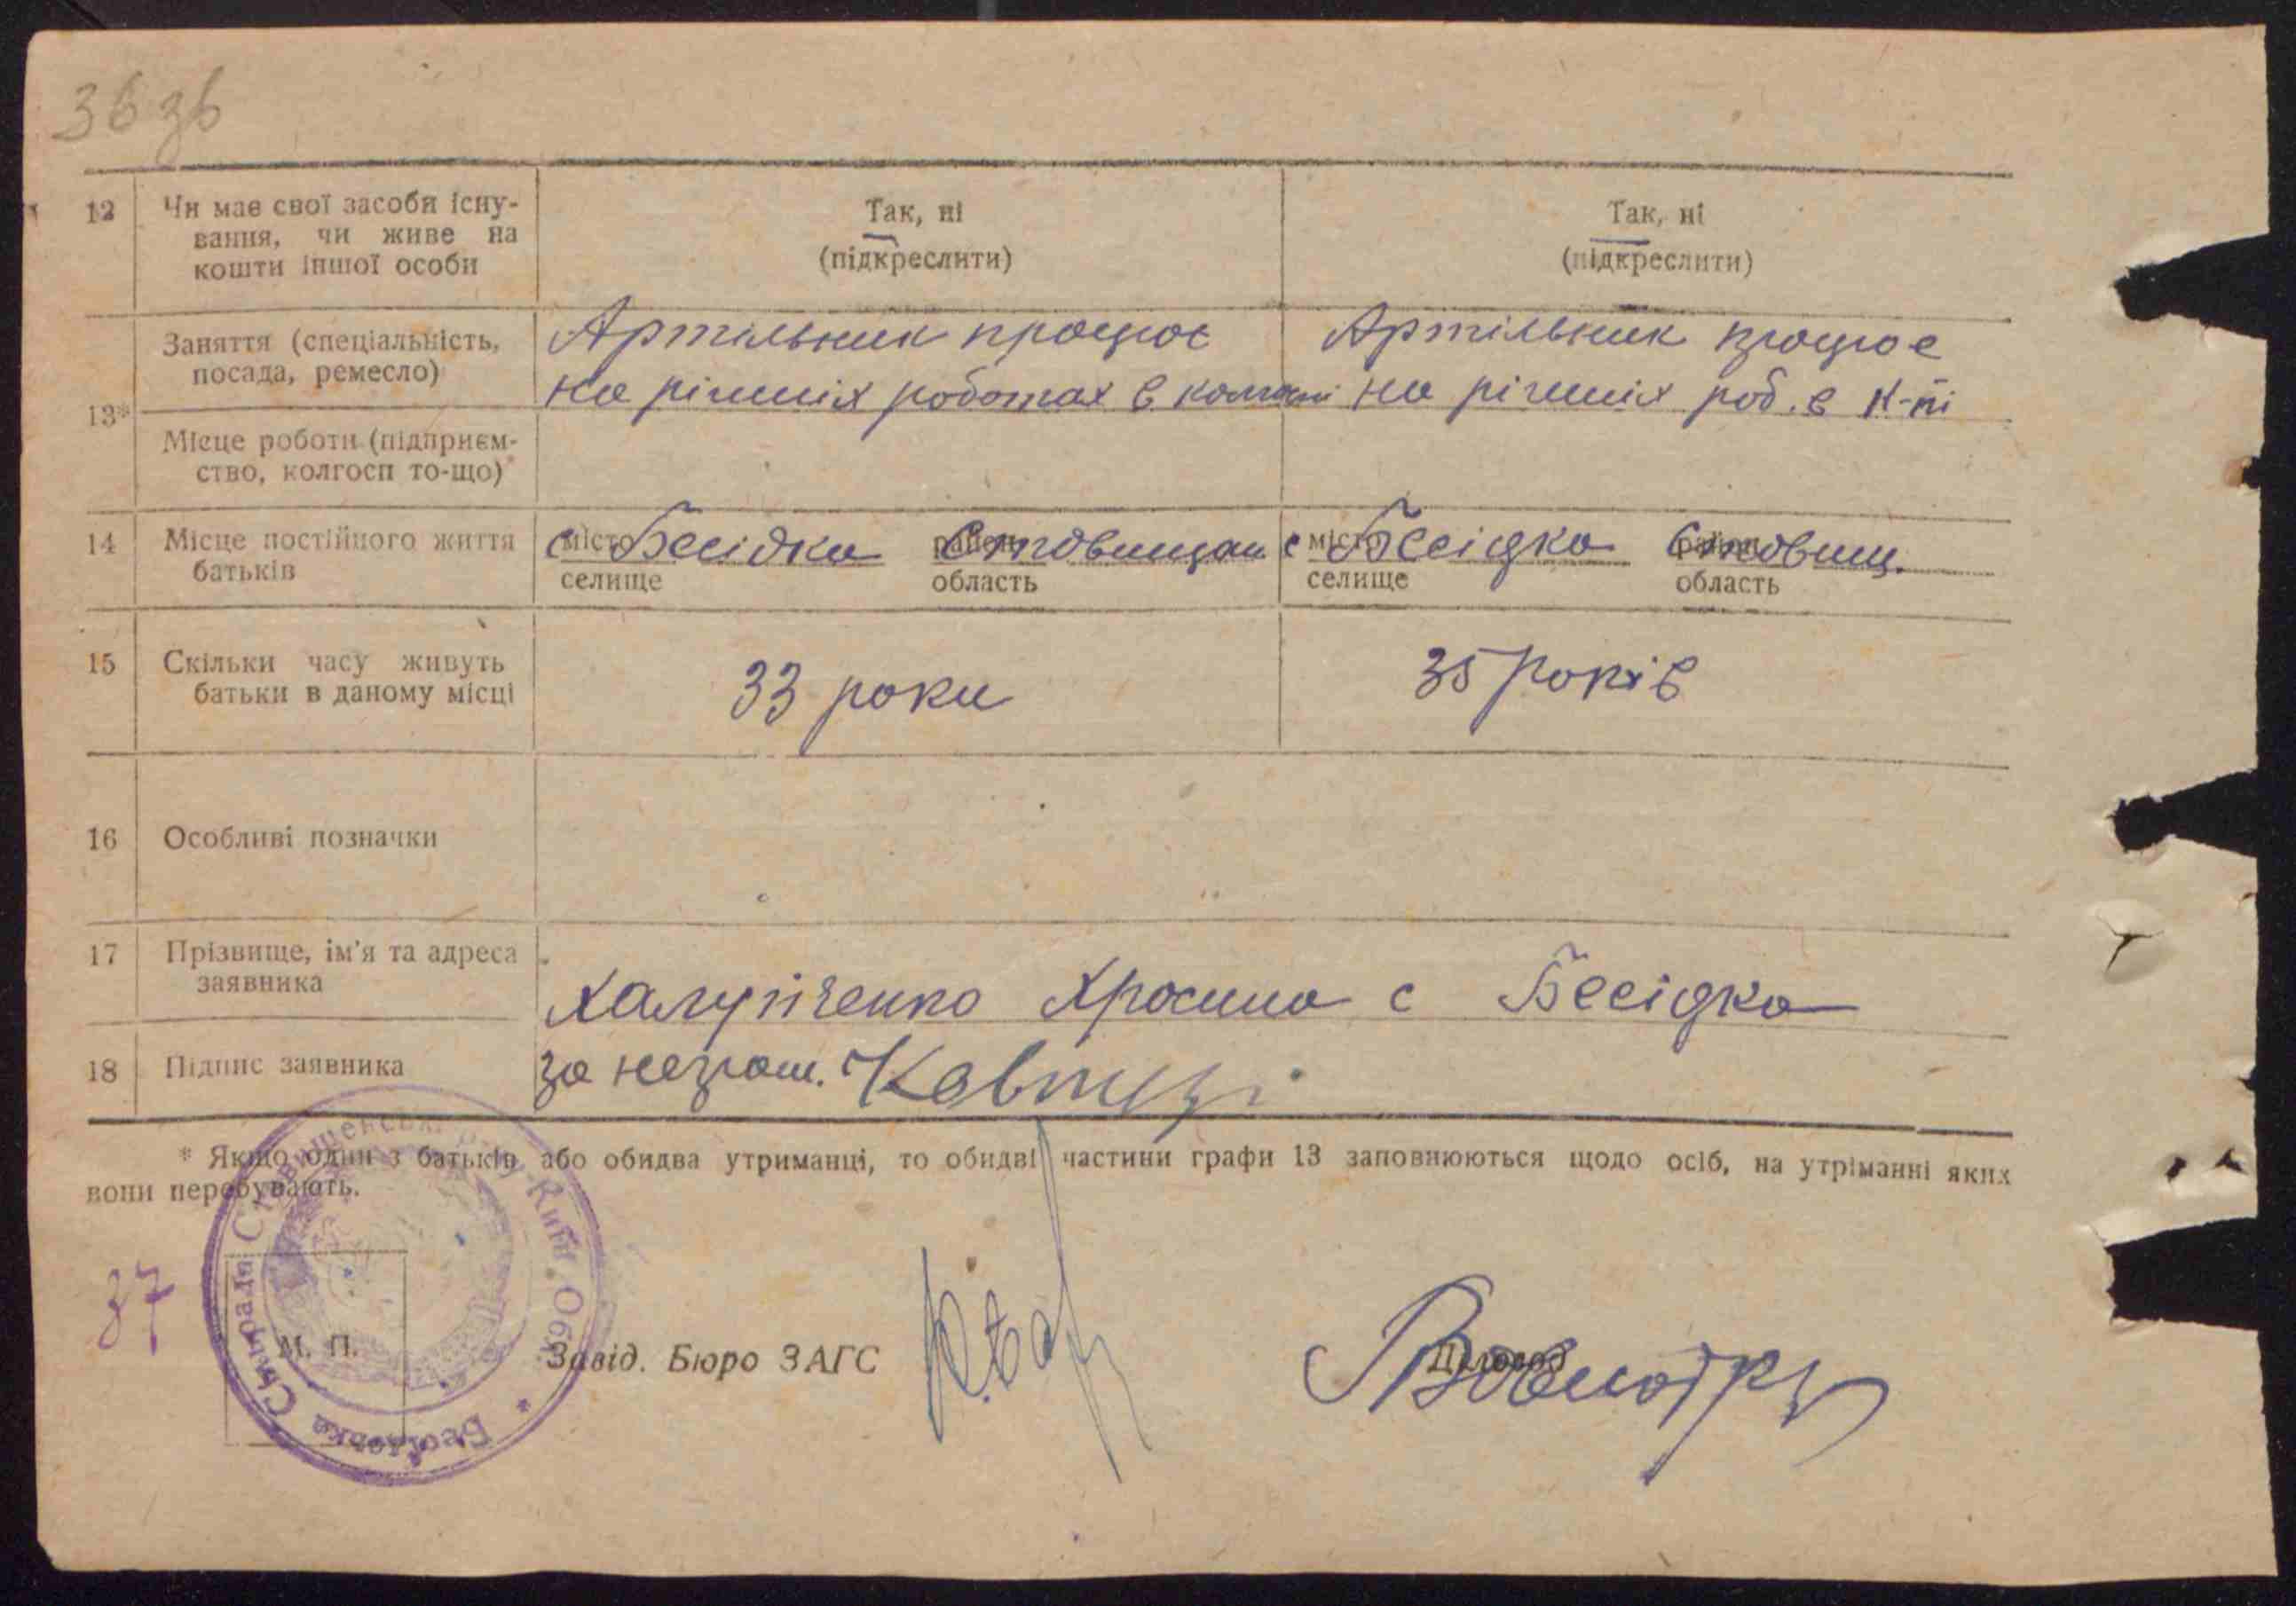 36 зв
12 Чи має свої засоби існу-
вання, чи живе на
кошти іншої особи
Так, ні
(підкреслити)
Так, ні
(підкреслити)
13*
Заняття (спеціальність,
посада, ремесло)
Артільник працює
на різних роботах в
Артільник працює
на різних роб. в к-пі
Місце роботи (підприєм-
ство, колгосп то-що)
14 Місце постійного життя
батьків
с місто Бесідка район
селище область
с місто Бесідка район Ставищ.
селище область
15 Скільки часу живуть
батьки в даному місці
33 роки
35 років
16 Особливі позначки
17 Прізвище, ім'я та адреса
заявника
Халупченко Хросина с Бесідка
18 Підпис заявника
за неграм.
* Якщо один з батьків або обидва утриманці, то обидві частини графи 13 заповнюються щодо осіб, на утріманні яких
вони перебувають.
37
М. П.
Завід. Бюро ЗАГС
Діловод